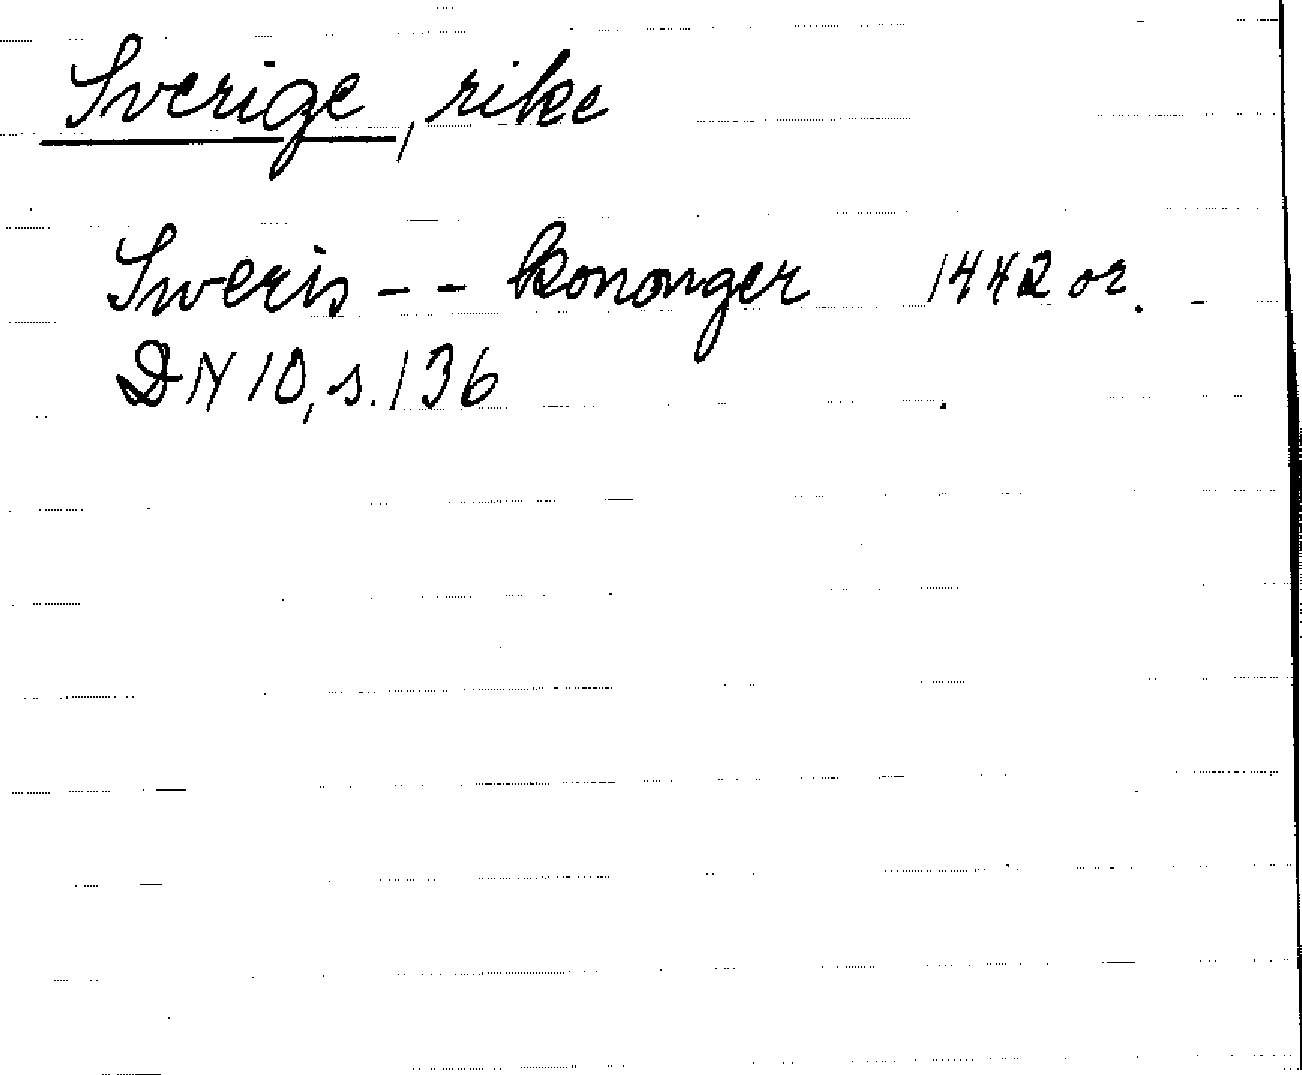 Sverige, rike
Sweris -- kononger 1442 or.
DN 10, s. 136